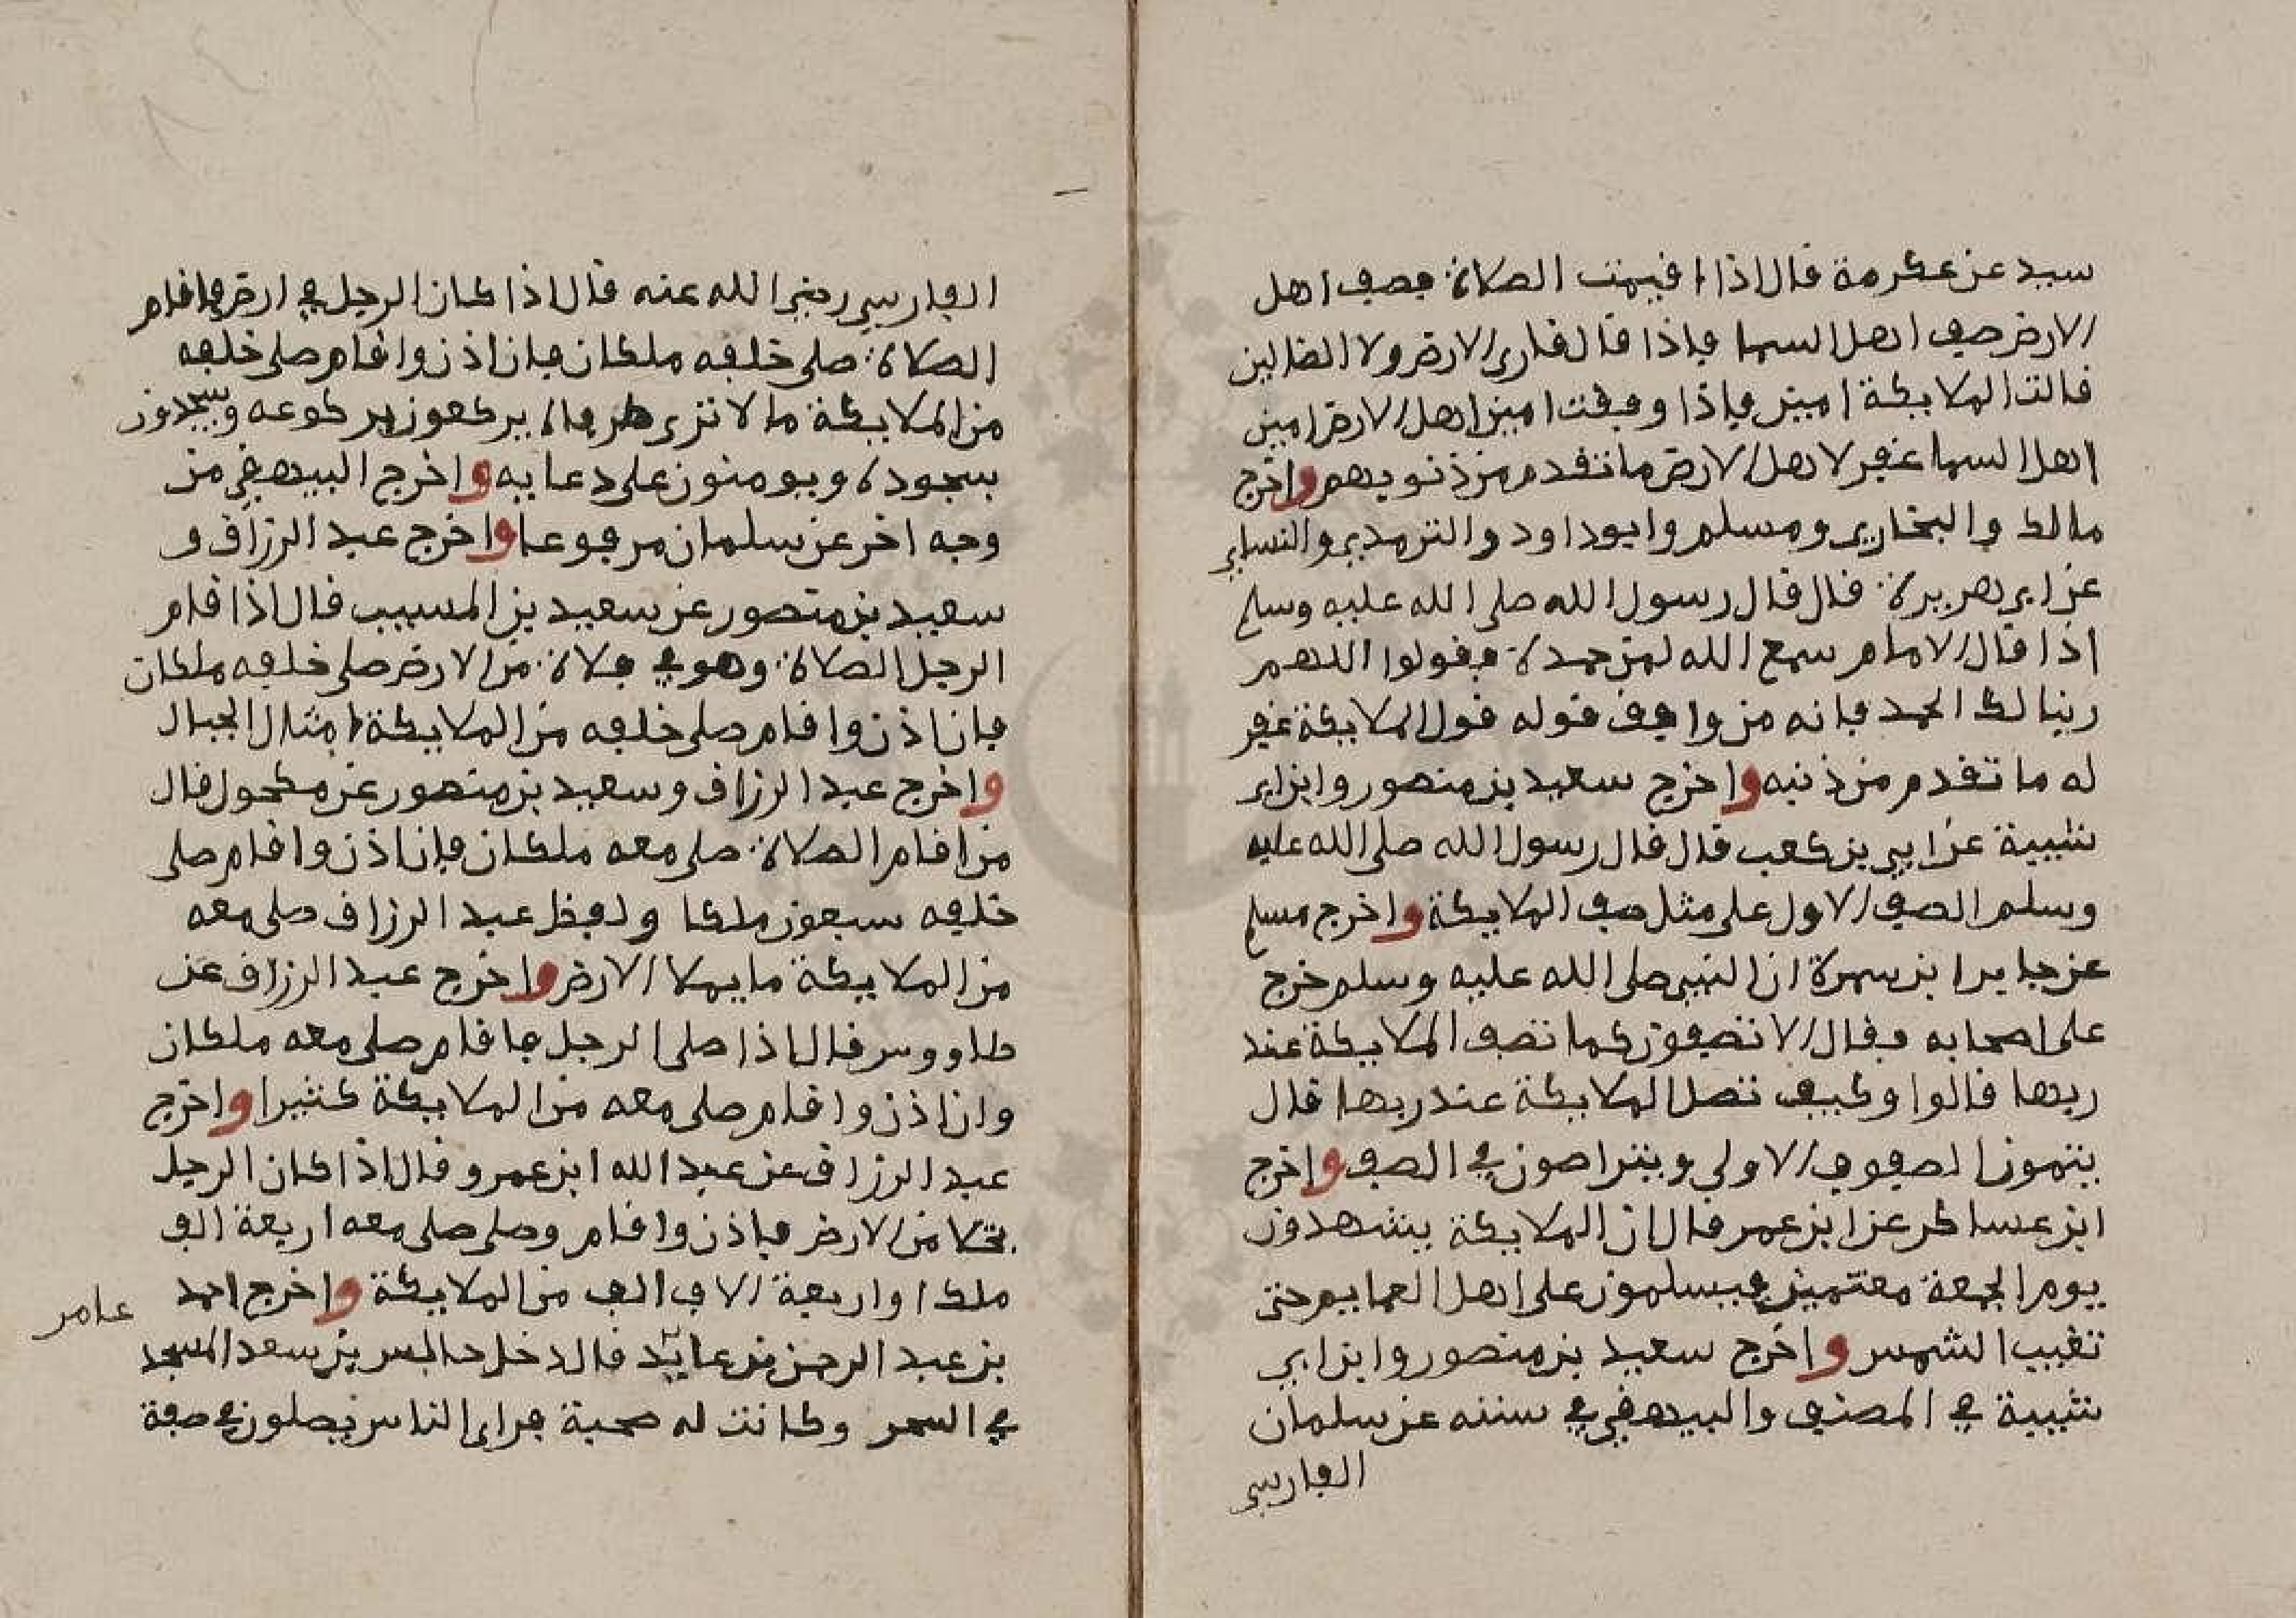 سيد عن عكرمة قال اذا اقيمت الصلاة فصف اهل
الارض صف اهل السما فاذا قال قارئ الارض ولا الضالين
قالت الملايكة امين فاذا وفقت امين اهل الارض امين
اهل السما غفر لاهل الارض ما تقدم من ذنوبهم واخرج
مالك والبخاري ومسلم وابوداود والترمذي والنساي
عن ابي هريرة قال قال رسول الله صلى الله عليه وسلم
اذا قال الامام سمع الله لمن حمده فقولوا اللهم
ربنا لك الحمد فانه من وافق قوله قول الملايكة غفر
له ما تقدم من ذنبه واخرج سعيد بن منصور وابن ابي
شيبة عن ابي بن كعب قال قال رسول الله صلى الله عليه
وسلم الصف الاول على مثل صف الملايكة واخرج مسلم
عن جابر ابن سمرة ان النبي صلى الله عليه وسلم خرج
على اصحابه فقال الا تصفون كما تصف الملايكة عند
ربها قالوا وكيف تصل الملايكة عند ربها قال
يتمون الصفوف الاولى ويتراصون في الصف واخرج
ابن عساكر عن ابن عمر قال ان الملايكة يشهدون
يوم الجمعة معتمين فيسلمون على اهل العمايم حتى
تغيب الشمس واخرج سعيد بن منصور وابن ابي
شيبة في المصنف والبيهقي في سننه عن سلمان
الفارسي
الفارسي رضي الله عنه قال اذا كان الرجل في ارض فاقام
الصلاة صلى خلفه ملكان فان اذن واقام صلى خلفه
من الملايكة ما لا ترى طرفاه يركعون بركوعه ويسجدون
بسجوده ويومنون على دعايه واخرج البيهقي من
وجه اخر عن سلمان مرفوعا واخرج عبد الرزاق و
سعيد بن منصور عن سعيد بن المسيب قال اذا قام
الرجل الصلاة وهو في فلاة من الارض صلى خلفه ملكان
فان اذن واقام صلى خلفه من الملايكة امثال الجبال
واخرج عبد الرزاق وسعيد بن منصور عن مكحول قال
من اقام الصلاة صلى معه ملكان فان اذن واقام صلى
خلفه سبعون ملكا ولفظ عبد الرزاق صلى معه
من الملايكة ما يملا الارض واخرج عبد الرزاق عن
طاووس قال اذا صلى الرجل فاقام صلى معه ملكان
وان اذن واقام صلى معه من الملايكة كثيرا واخرج
عبد الرزاق عن عبد الله ابن عمرو قال اذا كان الرجل
بفلا من الارض فاذن واقام وصلى صلى معه اربعة الف
ملك او اربعة الاف الف من الملايكة واخرج احمد
بن عبد الرحمن بن عايد قال دخل حابس بن سعد المسجد
عامر
في السحر وكانت له صحبة فراى الناس يصلون في صفة